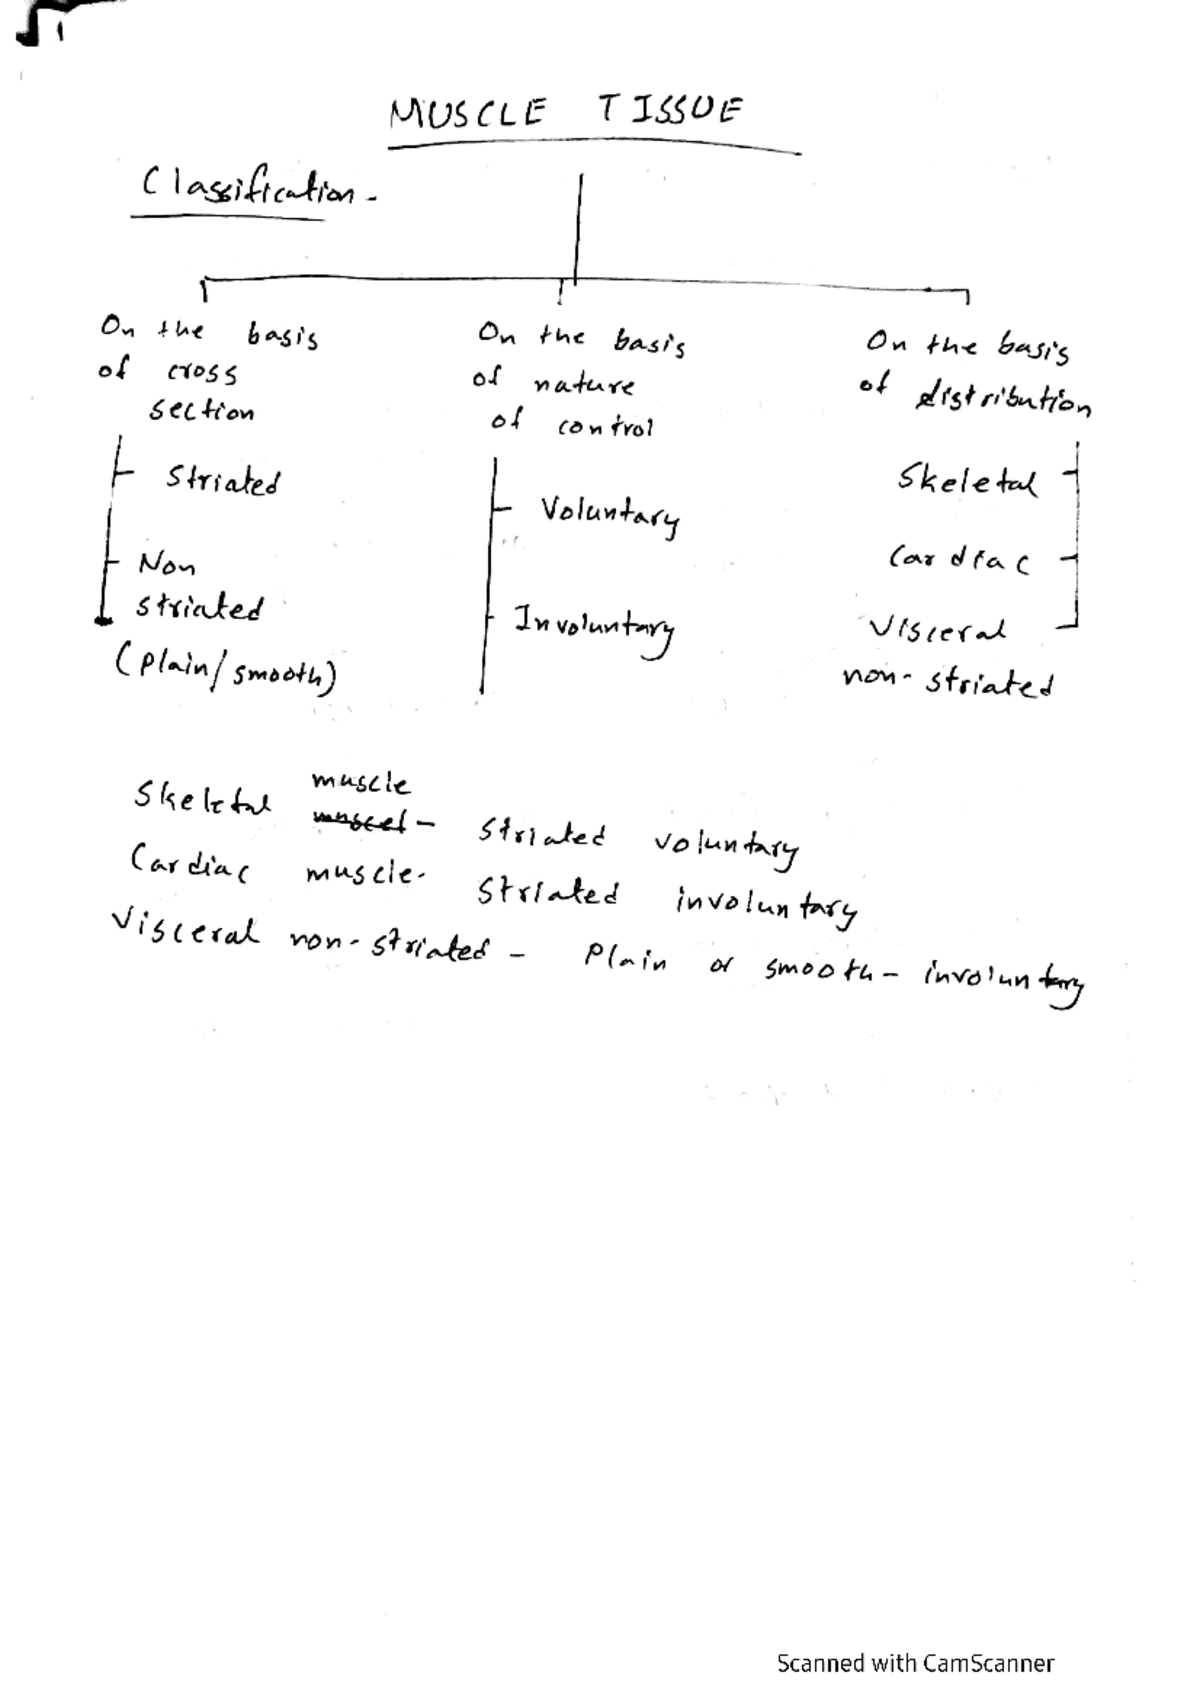 MUSCLE TISSUE
Classification -
On the basis
of cross
section
Striated
Non
striated
(plain/smooth)
On the basis
of nature
of control
Voluntary
Involuntary
On the basis
of distribution
Skeletal
Cardiac
Visceral
non-striated
Skeletal muscle muscel - striated voluntary
Cardiac muscle - striated involuntary
Visceral non-striated - Plain or smooth - involuntary
Scanned with CamScanner